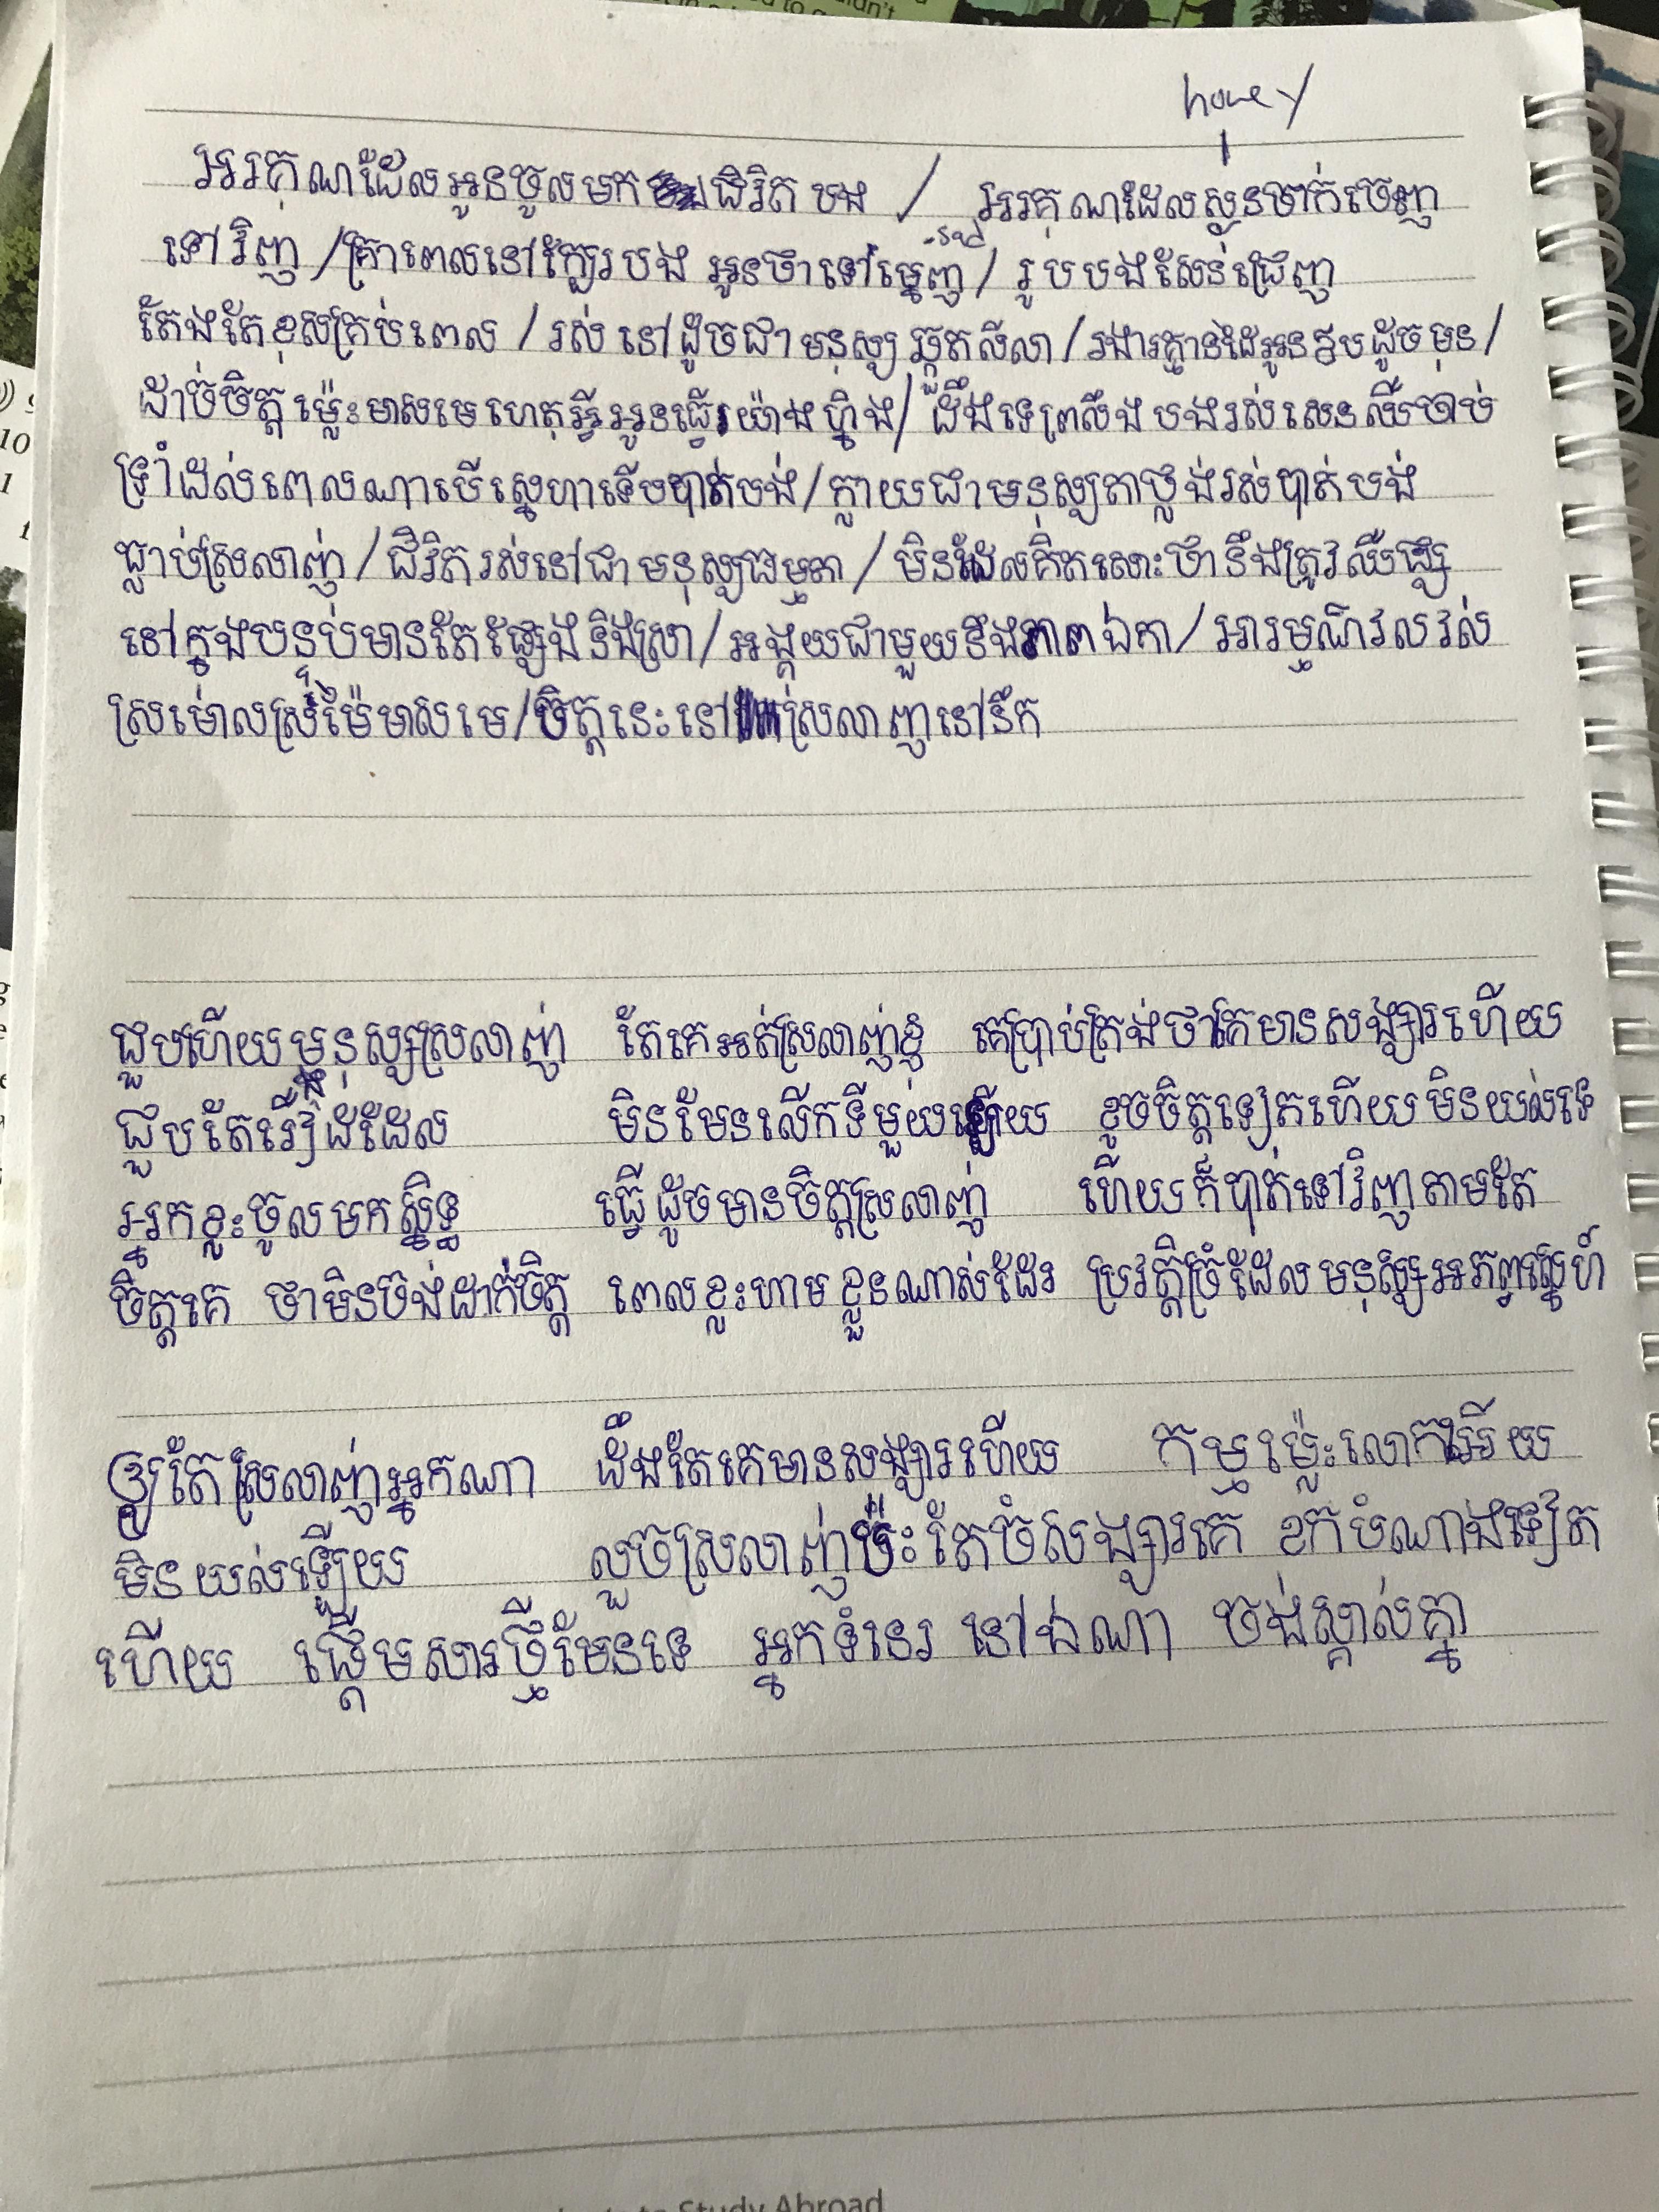 honey
អរគុណដែលអូនចូលមក ជិវិត បង / អរគុណដែលអូនចាក់ចេញ
ទៅវិញ / គ្រាពេលនៅក្បែរបង អូនថាទៅម្នេញ / រូបបងសែនជ្រេញ
តែងតែខុសគ្រប់ពេល / រស់នៅដូចជាមនុស្សឆ្កួតសីលា / រងារគ្មានដៃអូនឱបដូចមុន /
ដាច់ចិត្តម៉្លេះមាសមេ ហេតុអ្វីអូនធ្វើយ៉ាងហ្នឹង / ដឹងទេព្រលឹងបងរស់សេនឈឺចាប់
ទ្រាំដល់ពេលណាបើស្នេហាទើបបាត់បង់ / ក្លាយជាមនុស្សគាថ្លង់រស់បាត់បង់
ធ្លាប់ស្រលាញ់ / ជិវិតរស់នៅជាមនុស្សធម្មតា / មិនដែលគិតសោះថានឹងត្រូវឈឺផ្សា
នៅក្នុងបន្ទប់មានតែផ្សែងនិងស្រា / អង្គុយជាមួយនឹងភាពឯកា / អារម្មណ៍រលរល់
ស្រមោលស្រមៃមាសមេ / ចិត្តនេះនៅ ស្រលាញ់នៅនឹក
ជួបហើយមនុស្សស្រលាញ់ តែគេអត់ស្រលាញ់ខ្ញុំ គេប្រាប់ត្រង់ថាគេមានសង្សារហើយ
ជួបតែរឿងដដែល មិនមែនលើកទីមួយឡើយ ខូចចិត្តទៀតហើយមិនយល់ទេ
អ្នកខ្លះចូលមកស្និទ្ធ ធ្វើដូចមានចិត្តស្រលាញ់ ហើយក៏បាត់ទៅវិញតាមតែ
ចិត្តគេ ថាមិនចង់ដាក់ចិត្ត ពេលខ្លះហាមខ្លួនណាស់ដែរ ប្រវត្តិច្រំដែលមនុស្សអភព្វស្នេហ៍
ឲ្យតែស្រលាញ់អ្នកណា ដឹងតែគេមានសង្សារហើយ កម្មម៉្លេះលោកអើយ
មិនយល់ឡើយ លួចស្រលាញ់ប៉ះតែចំសង្សារគេ ខកបំណងទៀត
ហើយ ផ្ដើមសារថ្មីមែនទេ អ្នកទំនេរ នៅឯណា ចង់ស្គាល់គ្នា
to Study Abroad